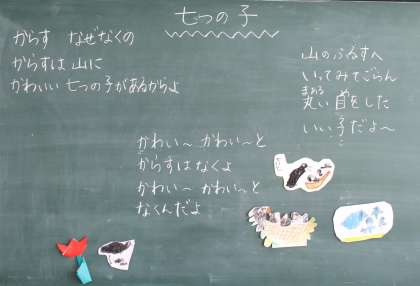 七つの子
からす なぜなくの
からすは山に
かわいい七つの子があるからよ
かわい～ かわい～と
からすはなくよ
かわい～ かわいっと
なくんだよ
山のふるすへ
いってみてごらん
まあるめ
丸い目をした
いい子だよ～